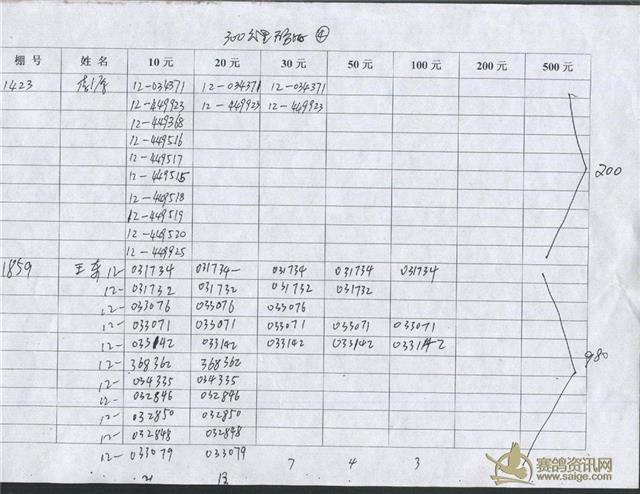 300公里 ④
棚号 姓名 10元 20元 30元 50元 100元 200元 500元
1423 12-034371 12-034371 12-034371
12-449923 12-449923 12-449923
12-449368
12-449516
12-449517
12-449515
12-449518
12-449519
12-449520
12-449925
200
1859 王 12- 031734 031734 031734 031734 031734
12- 031732 031732 031732 031732
12- 033076 033076 033076
12- 033071 033071 033071 033071 033071
12- 033142 033142 033142 033142 033142
12- 368362 368362
12- 034335 034335
12- 032846 032846
12- 032850 032850
12- 032848 032848
12- 033079 033079
980
21 13 7 4 3
赛鸽资讯网
www.saige.com